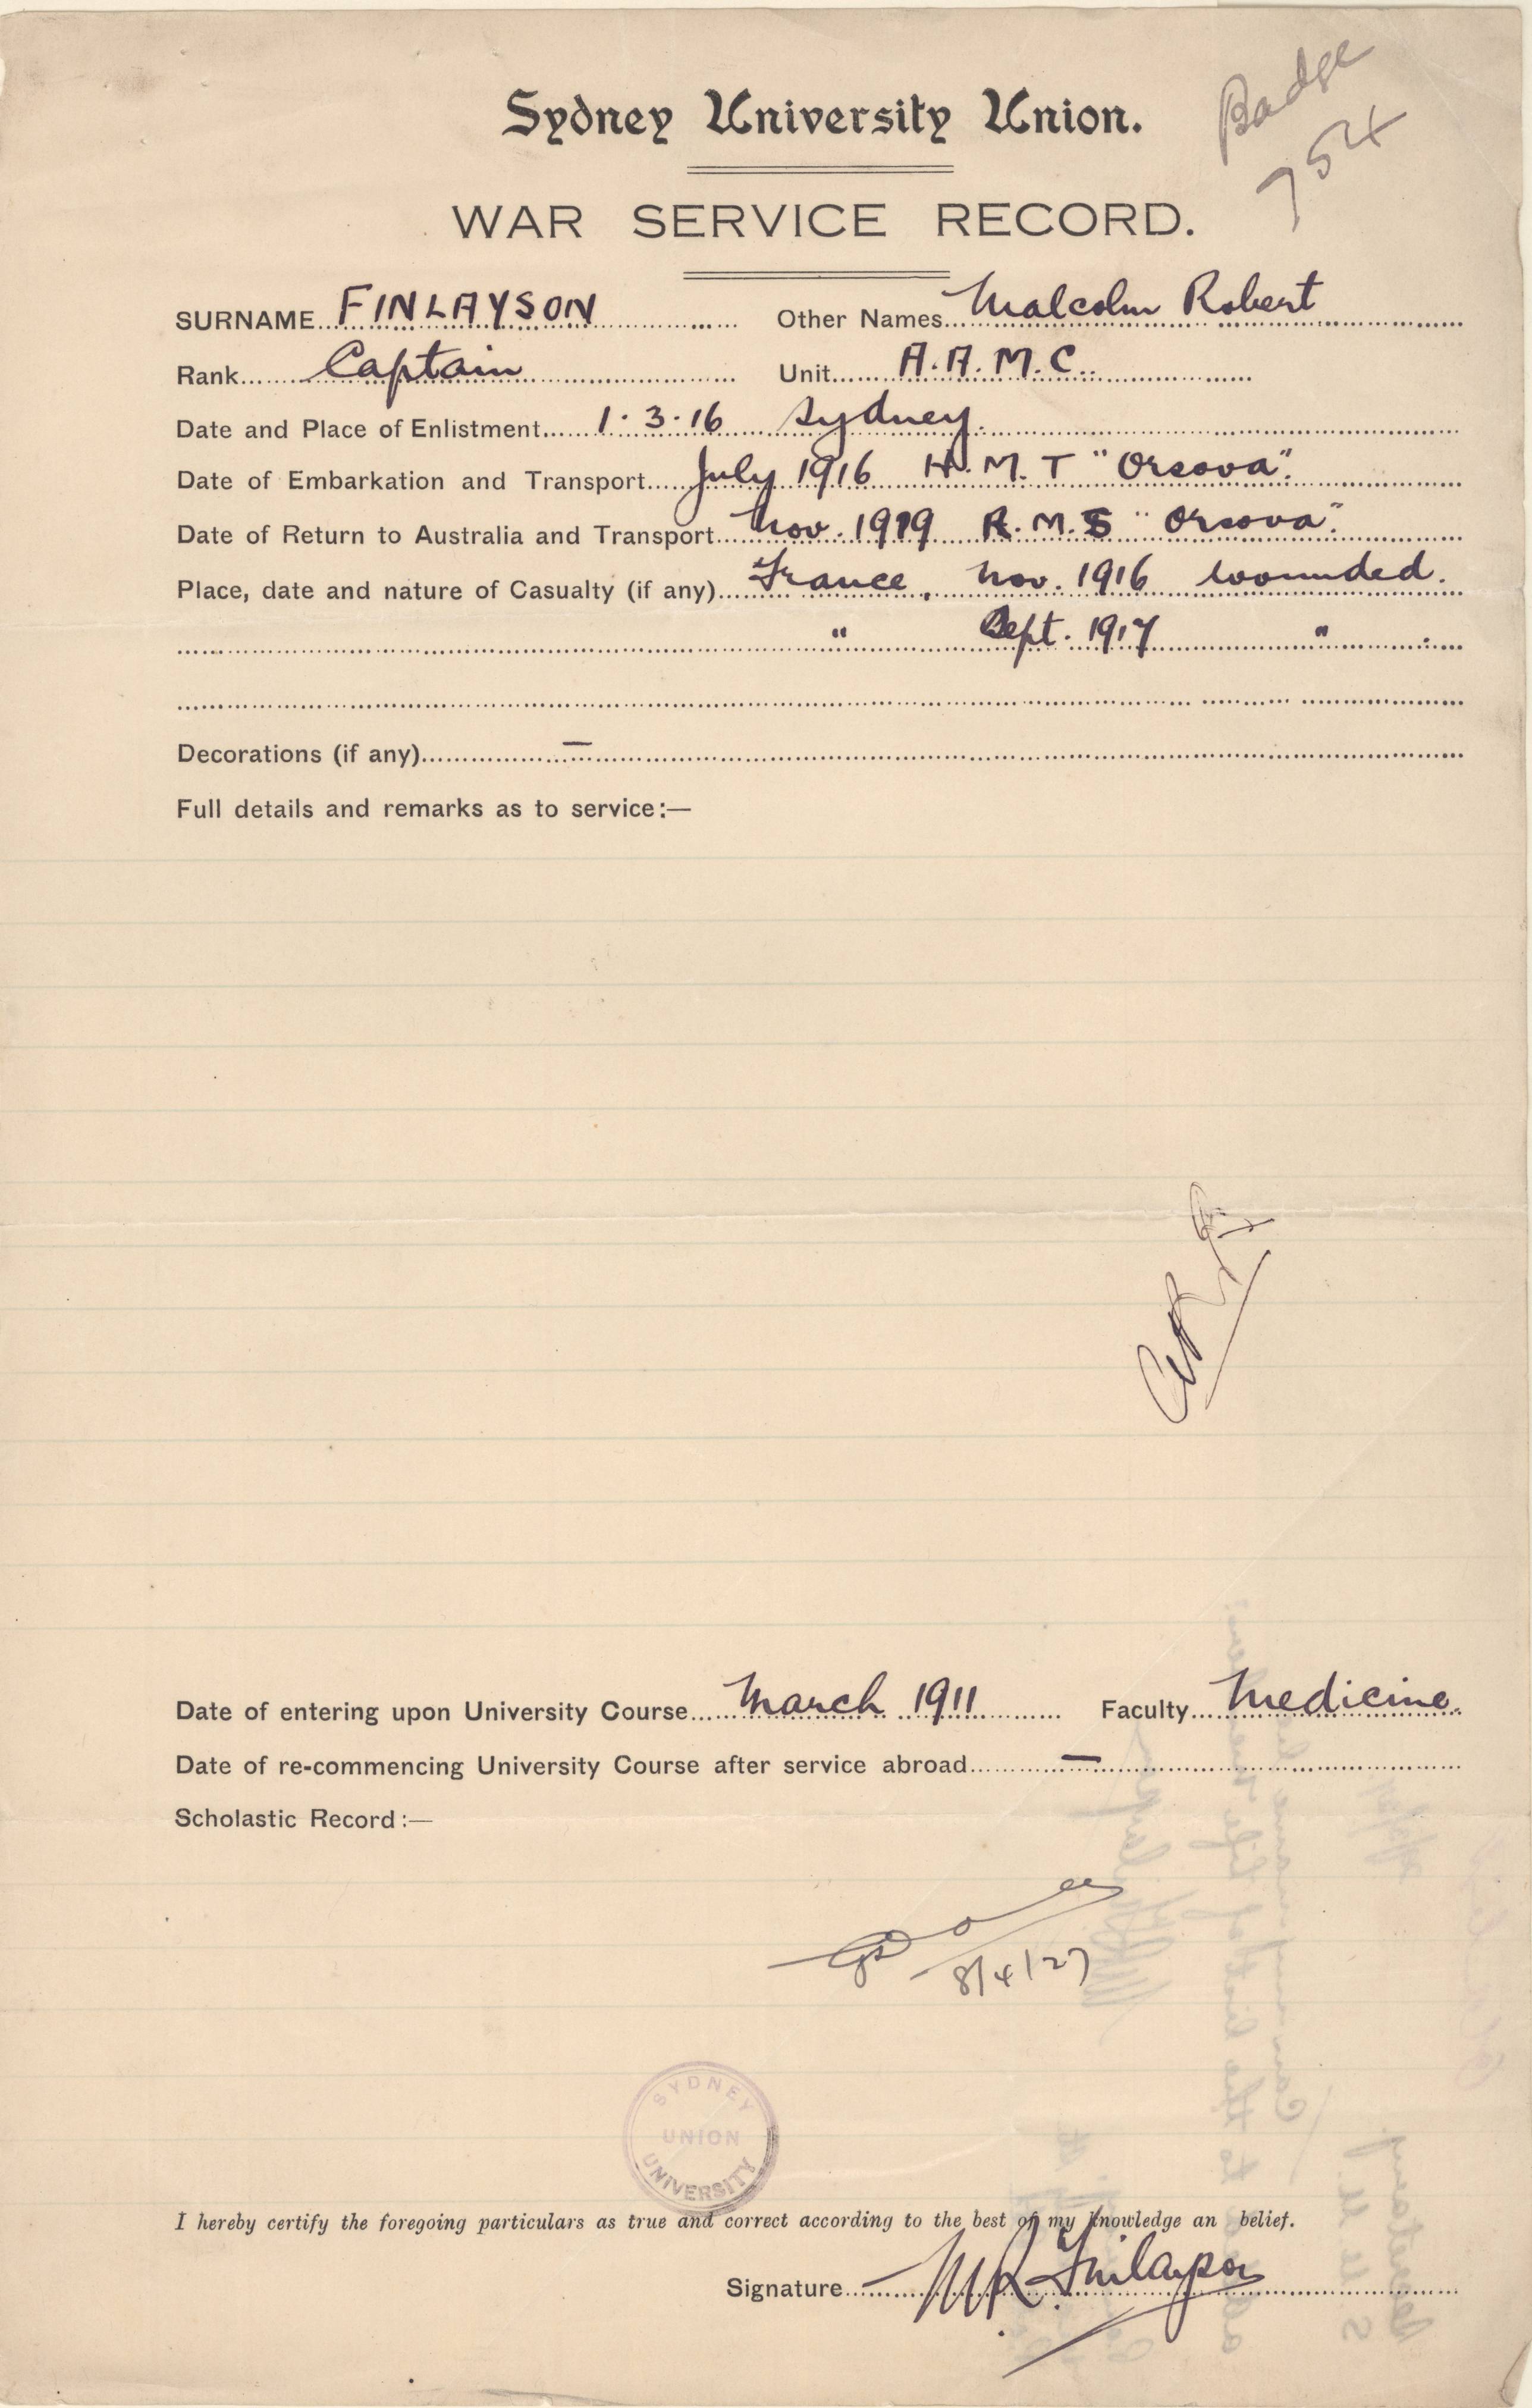 Badge
754
Sydney University Union.
WAR SERVICE RECORD.
SURNAME FINLAYSON Other Names Malcolm Robert
Rank Captain Unit A.A.M.C.
Date and Place of Enlistment 1.3.16 Sydney.
Date of Embarkation and Transport July 1916 H.M.T "Orsova".
Date of Return to Australia and Transport Nov. 1919 R.M.S "Orsova".
Place, date and nature of Casualty (if any) France, Nov. 1916 wounded.
" Sept. 1917 " .
Decorations (if any) —
Full details and remarks as to service:—
Date of entering upon University Course March 1911 Faculty Medicine.
Date of re-commencing University Course after service abroad —
Scholastic Record:—
8/4/27
SYDNEY
UNION
UNIVERSITY
I hereby certify the foregoing particulars as true and correct according to the best of my knowledge an belief.
Signature MR Finlayson